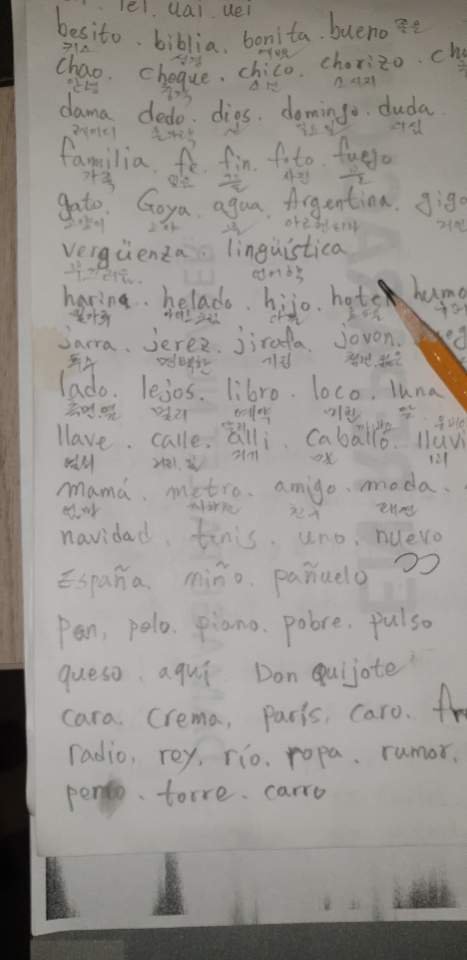 iei, uai, uei
besito. biblia. bonita. bueno 좋은
키스 성경 예쁜
chao. choque. chico. chorizo. ch
안녕 충격 소년 소시지
dama dedo. dios. domingo. duda
레이디 손가락 신 일요일 의심
familia. fe. fin. foto. fuego
가족 믿음 끝 사진 불
gato. Goya. agua. Argentina. gig
고양이 고야 물 아르헨티나 거인
vergüenza. lingüística
부끄러움 언어학
harina. helado. hijo. hotel humo
밀가루 아이스크림 아들 호텔
jarra. jerez. jirafa. jovon.
기린
lado. lejos. libro. loco. luna
멀리 달
llave. calle. alli. caballo. lluvi
열쇠 거리, 길 저기 비
mamá. metro. amigo. moda.
엄마 지하철 친구
navidad. tenis. uno. nuevo
España. miño. pañuelo
pan, pelo. piano. pobre. pulso
queso. aquí Don Quijote
cara. Crema, parís, caro.
radio, rey, río. ropa. rumor,
torre. carro